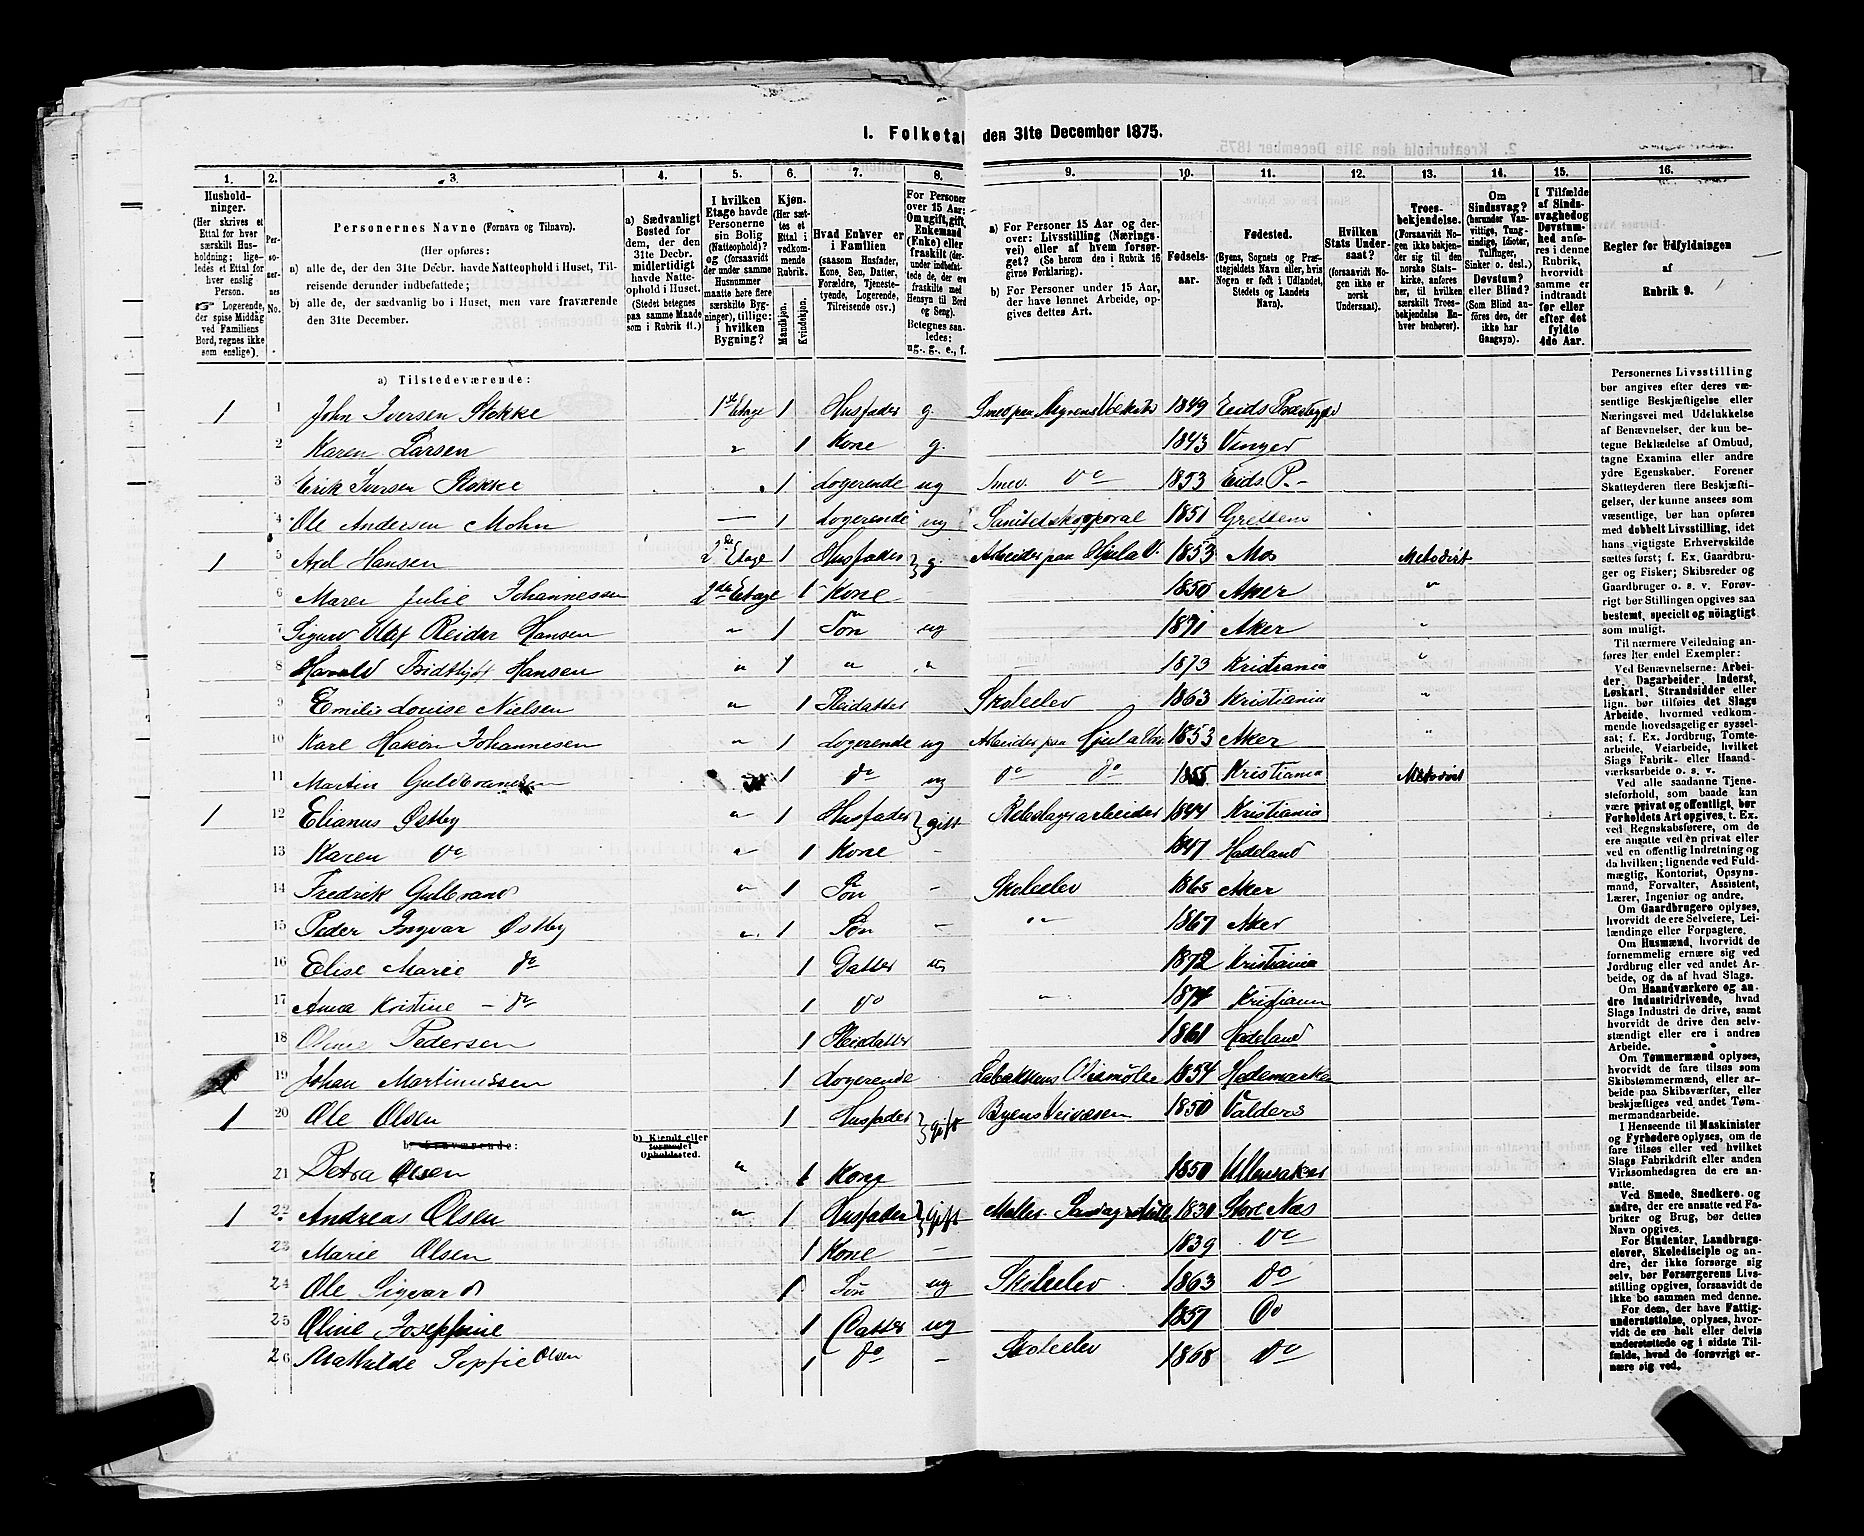 I. Folketal den 31te December 1875.
1. 2. 3. 4. 5. 6. 7. 8. 9. 10. 11. 12. 13. 14. 15. 16.
Husholdninger. (Her skrives et Ettal for hver særskilt Husholdning; ligeledes et Ettal for hver enslig Person. ☞ Logerende, der spise Middag ved Familiens Bord, regnes ikke som enslige).
Personernes No.
Personernes Navne (Fornavn og Tilnavn).
(Her opføres:
a) alle de, der den 31te Decbr. havde Natteophold i Huset, Tilreisende derunder indbefattede;
b) alle de, der sædvanlig bo i Huset, men vare fraværende den 31te December.
a) Sædvanligt Bosted for dem, der den 31te Decbr. midlertidigt havde Natteophold i Huset. (Stedet betegnes paa samme Maade som i Rubrik 11.)
I hvilken Etage havde Personerne sin Bolig (Natteophold)? og (forsaavidt der under samme Husnummer maatte høre flere særskilte Bygninger), tillige: i hvilken Bygning?
Kjøn. (Her sættes et Ettal i vedkommende Rubrik. Mandkjøn. Kvindekjøn.
Hvad Enhver er i Familien (saasom Husfader, Kone, Søn, Datter, Forældre, Tjenestetyende, Logerende, Tilreisende osv.)
For Personer over 15 Aar: Om ugift, gift, Enkemand (Enke) eller fraskilt (derunder indbefattede de, der ere fraskilte med Hensyn til Bord og Seng). Betegnes saaledes: ug., g., e., f.
a) For Personer 15 Aar og derover: Livsstilling (Næringsvei) eller af hvem forsørget? (Se herom den i Rubrik 16 givne Forklaring).
b) For Personer under 15 Aar, der have lønnet Arbeide, opgives dettes Art.
Fødselsaar.
Fødested. (Byens, Sognets og Præstegjeldets Navn eller, hvis Nogen er født i Udlandet, Stedets og Landets Navn).
Hvilken Stats Undersaat? (forsaavidt Nogen ikke er norsk Undersaat).
Troesbekjendelse. (Forsaavidt Nogen ikke bekjender sig til den norske Statskirke, anføres her, til hvilken særskilt Troesbekjendelse Enhver henhører).
Om Sindssvag? (herunder Vanvittige, Tungsindige, Idioter, Tullinger, Sinker o. desl.). Døvstum? eller Blind? (Som Blind anføres den, der ikke har Gangsyn).
I Tilfælde af Sindssvaghed og Døvstumhed anføres i denne Rubrik, hvorvidt samme er indtraadt før eller efter det fyldte 4de Aar.
Regler for Udfyldningen af Rubrik 9.
a) Tilstedeværende:
1 1 John Iversen Stokke 1ste Etage 1 Husfader g. Smed paa Myrens Værksted 1849 Eids Præstegjd
2 Karen Larsen " 1 Kone g. 1843 Vinger
3 Erik Iversen Stokke 1 Logerende ug Smed. Do 1853 Eids P.
4 Ole Andersen Mohn — 1 Logerende ug Sanitetskorporal 1851
1 5 Axel Hansen 2de Etage 1 Husfader g. Arbeider paa Hjula V. 1853 Mos Metodist
6 Maren Julie Johannessen 2de Etage 1 Kone – 1850 Aker "
7 Sigurd Olaf Reidar Hansen " 1 Søn ug 1871 Aker "
8 Harald Fridthjof Hansen " 1 " " 1873 Kristiania "
9 Emilie Louise Nielsen " 1 Pleidatter Skoleelev 1863 Kristiania "
10 Karl Hakon Johannesen " 1 Logerende ug Arbeider paa Hjula 1853 Aker "
11 Martin Guldbrandsen 1 do ug do do 1855 Kristiania Metodist
1 12 Elianus Østby " 1 Husfader gift Rebslagerarbeider 1844 Kristiania
13 Karen do " 1 Kone – 1847 Hadeland
14 Fredrik Gulbrand " 1 Søn – Skoleelev 1865 Aker
15 Peder Ingvar Østby " 1 Søn – " 1867 Aker
16 Elise Marie do 1 Datter 1872 Kristiania
17 Anna Kristine – do 1 do " 1874 Kristiania
18 Oline Pedersen 1 Pleidatter 1861 Hadeland
19 Johan Martinussen 1 Logerende 1854 Hedemarken
1 20 Ole Olsen 1 Husfader gift Byens Veivæsen 1850 Valders
b) Fraværende: b) Kjendt eller formodet Opholdssted.
21 Petra Olsen " 1 Kone 1850 Ullensaker
1 22 Andreas Olsen " 1 Husfader gift 1830 Store Næs
23 Marie Olsen 1 Kone – 1839 do
24 Ole Sigvard 1 Søn ug Skoleelev 1863 do
25 Oline Josephine 1 Datter ug 1857 do
26 Mathilde Sopfie Olsen 1 do – Skoleelev 1868 do
Personernes Livsstilling
bør angives efter deres væsentlige
Beskjæftigelse eller
Næringsvei med Udelukkelse
af Benævnelser, der kun betegne
Beklædelse af Ombud,
tagne Examina eller andre
ydre Egenskaber. Forener
Skatteyderen flere Beskjæftigelser,
der kunne ansees som
væsentlige, bør han opføres
med dobbelt Livsstilling, idet
hans vigtigste Erhvervskilde
sættes først; f. Ex. Gaardbruger
og Fisker; Skibsreder og
Gaardbruger o. s. v. Forøvrigt
bør Stillingen opgives saa
bestemt, specielt og nöiagtigt
som muligt.
Til nærmere Veiledning anføres
her endel Exempler:
Ved Benævnelserne: Arbeider,
Dagarbeider, Inderst,
Løskarl, Strandsidder eller
lign. bør tilføies det Slags
Arbeide, hvormed vedkommende
hovedsagelig er sysselsat;
f. Ex. Jordbrug, Tomtearbeide,
Veiarbeide, hvilket
Slags Fabrik- eller Haandværksarbeide
o. s. v.
Ved alle saadanne Tjenesteforhold,
som baade kan
være privat og offentligt, bør
Forholdets Art opgives, t. Ex.
ved Regnskabsførere, om de
ere ansatte ved en privat eller
ved en offentlig Indretning og
da hvilken; lignende ved Fuldmægtig,
Kontorist, Opsynsmand,
Forvalter, Assistent,
Lærer, Ingeniør og andre.
Om Gaardbrugere oplyses,
hvorvidt de ere Selveiere, Leilændinge
eller Forpagtere.
Om Husmænd, hvorvidt de
fornemmelig ernære sig ved
Jordbrug eller ved andet Arbeide,
og da af hvad Slags.
Om Haandværkere og andre
Industridrivende, hvad
Slags Industri de drive, samt
hvorvidt de drive den selvstændigt
eller ere i andres
Arbeide.
Om Tømmermænd oplyses,
hvorvidt de fare tilsøs som
Skibstømmermænd, eller arbeide
paa Skibsværfter, eller
beskjæftiges ved andet Tømmermandsarbeide.
I Henseende til Maskinister
og Fyrbødere oplyses, om de
fare tilsøs eller ved hvilket
Slags Fabrikdrift eller anden
Virksomhedsgren de ere ansatte.
Ved Smede, Snedkere og
andre, der ere ansatte ved Fabriker
og Brug, bør dettes
Navn opgives.
For Studenter, Landbrugselever,
Skoledisciple og andre,
der ikke forsørge sig
selv, bør Forsørgerens Livsstilling
opgives, forsaavidt de
ikke bo sammen med denne.
For dem, der have Fattigunderstøttelse,
oplyses, hvorvidt
de ere helt eller delvis
understøttede og i sidste Tilfælde,
hvad de forøvrigt ernære
sig ved.